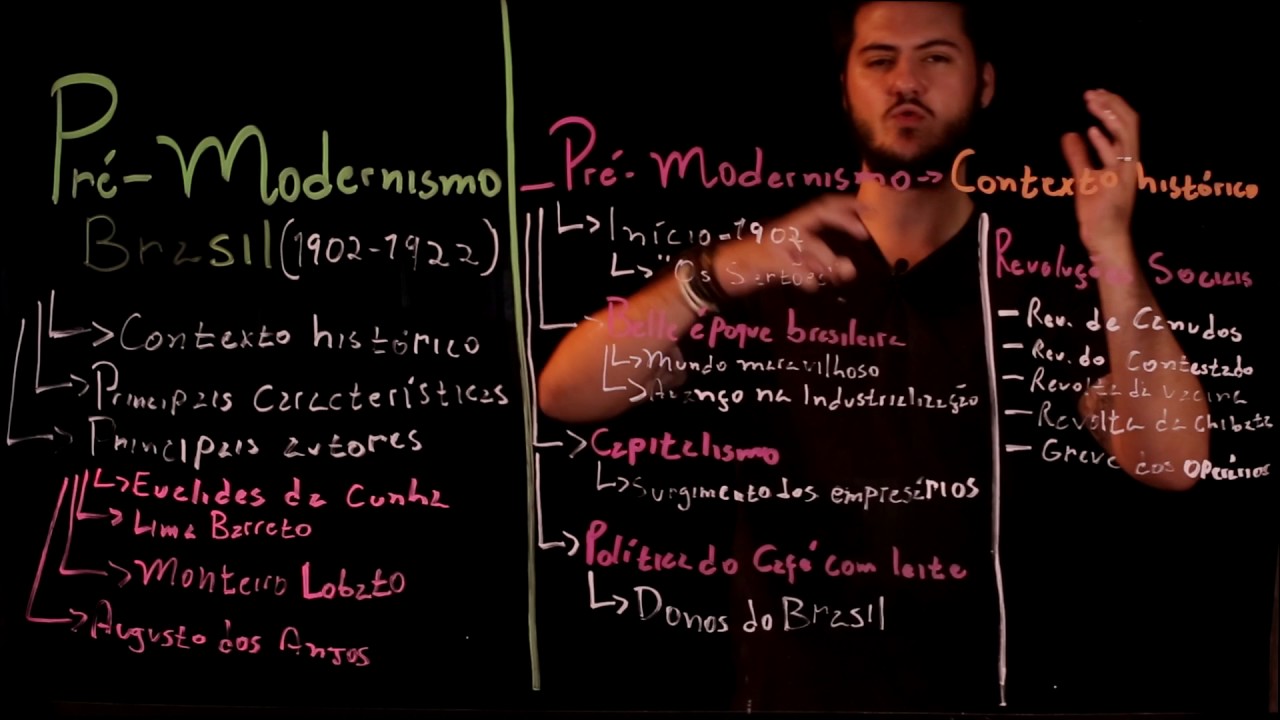 Pré-Modernismo
Brasil (1902-1922)
Contexto histórico
Principais características
Principais autores
Euclides da Cunha
Lima Barreto
Monteiro Lobato
Augusto dos Anjos
Pré-Modernismo -> Contexto histórico
Início - 1902
"Os Sertões
Belle époque brasileira
Mundo maravilhoso
Avanço na Industrialização
Capitalismo
Surgimento dos empresários
Política do Café com leite
Donos do Brasil
Revolução Sociais
- Rev. de Canudos
- Rev. do Contestado
- Revolta da Vacina
- Revolta da chibata
- Greve dos operários